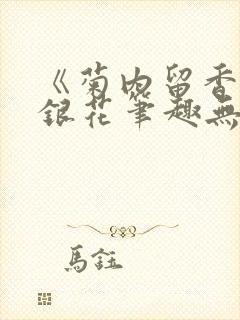 《菊内留香
銀花筆趣無
馬鈺